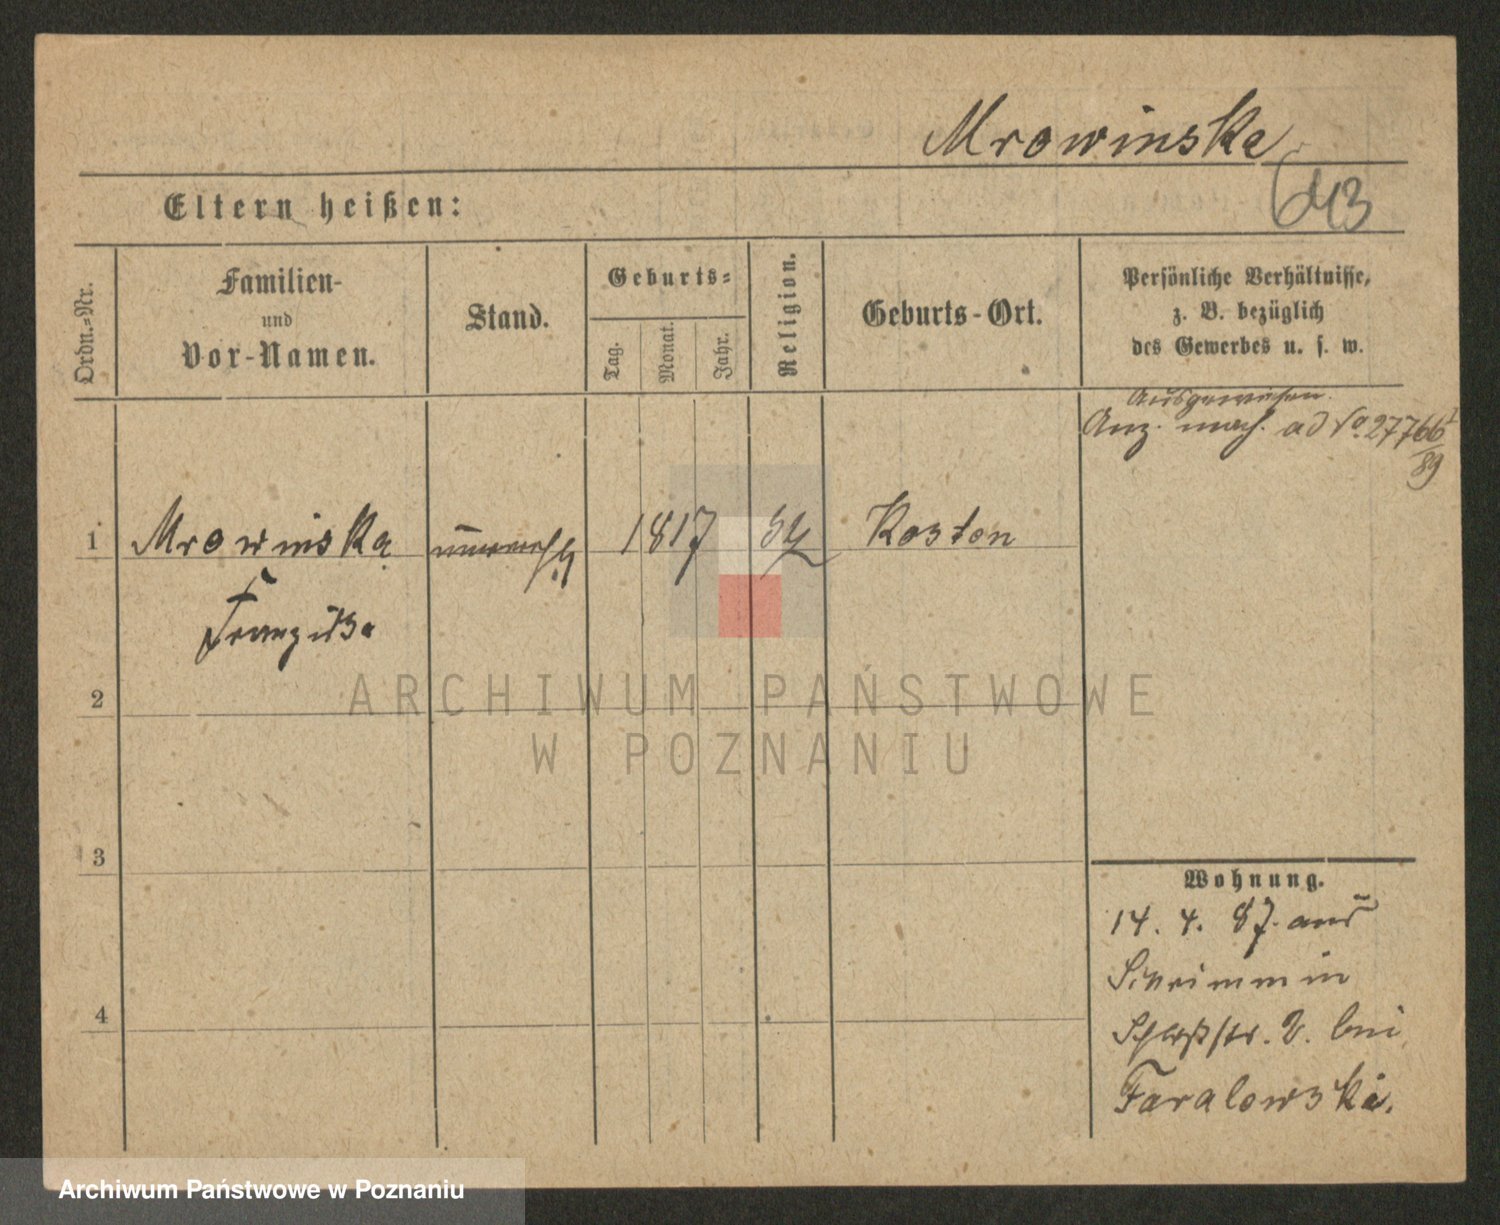 Mrowinska
643
Eltern heißen:
Ordn.-Nr.
Familien-
und
Vor-Namen.
Stand.
Geburts-
Tag.
Monat.
Jahr.
Religion.
Geburts-Ort.
Persönliche Verhältnisse,
z. B. bezüglich
des Gewerbes u. s. w.
Ausgewiesen.
Anz. mach. ad No. 27766
89
1 Mrowinska 1817 Koston
Franziska
2
3
4
Wohnung.
14. 4. 87. aus
Schrimm in
Schloßstr. 2. bei
Faralowska.
ARCHIWUM PAŃSTWOWE
W POZNANIU
Archiwum Państwowe w Poznaniu